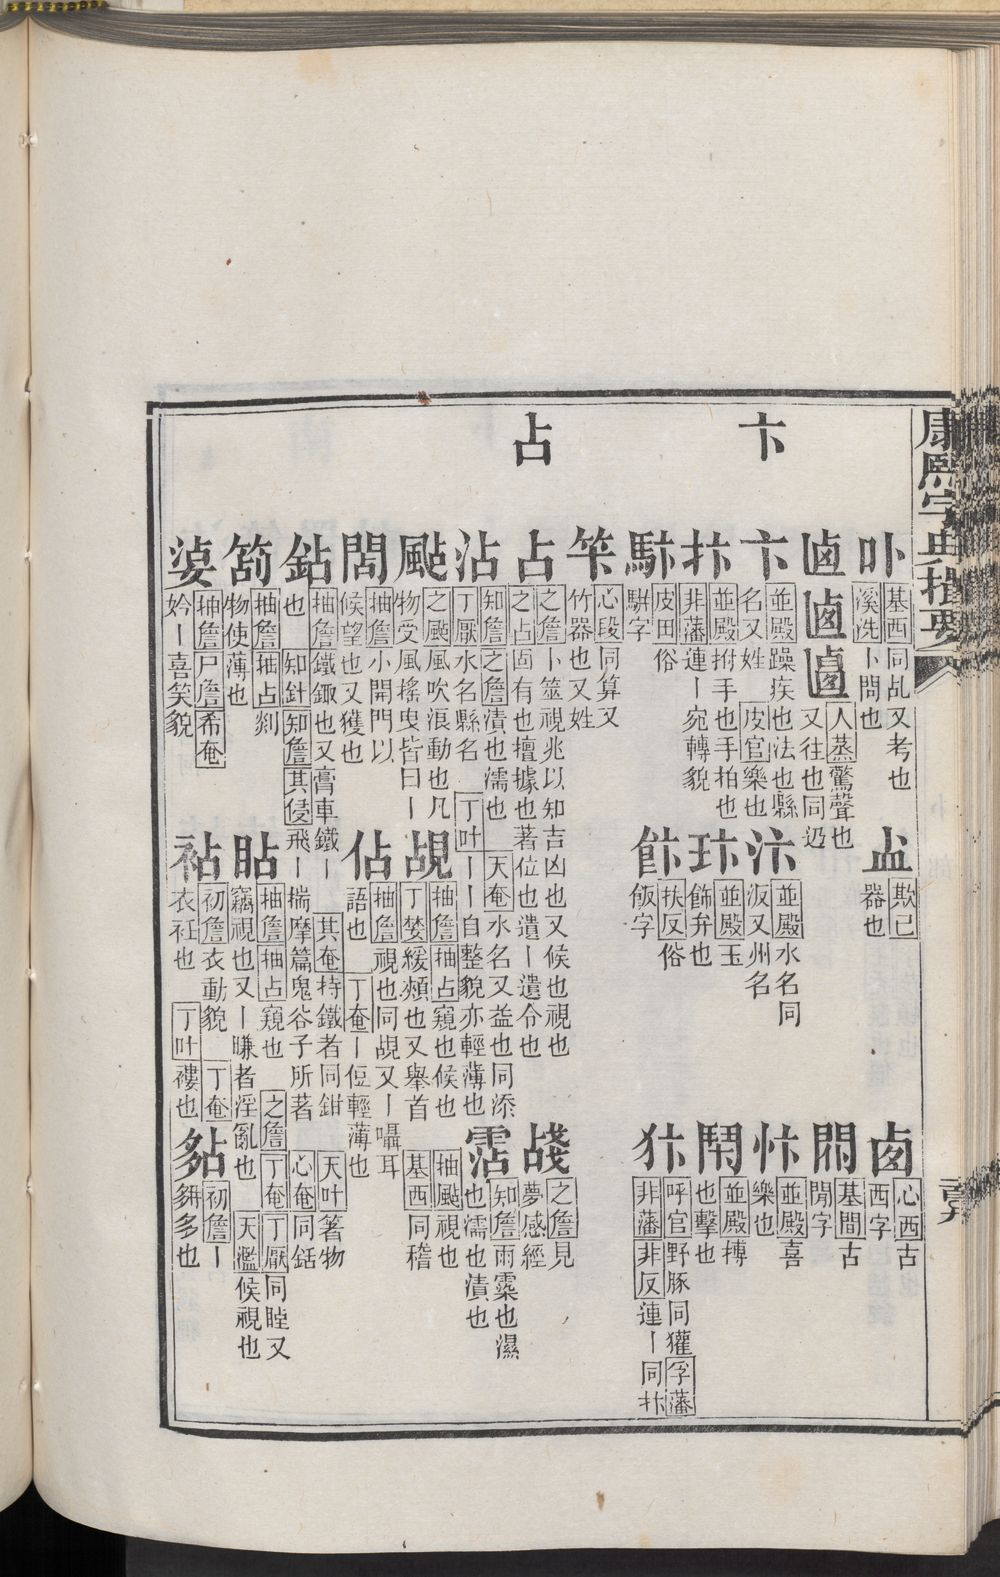 康熙字典撮要
卜
卟 基西 同乩又考也
溪洗 卜問也
㿽 欺己
器也
卤 心西 古
西字
卥 𠧟 𠧪 人蒸 驚聲也
又往也同迺
閒 基間 古
閒字
卞
卞 並殿 躁疾也法也縣
名又姓 皮官 樂也
汴 並殿 水名同
汳又州名
忭 並殿 喜
樂也
抃 並殿 拊手也手拍也
非藩 連丨宛轉貌
玣 並殿 玉
飾弁也
閞 並殿 搏
也擊也
駍 皮田 俗
駢字
飰 扶反 俗
飯字
犿 呼官 野豚同獾 孚藩
非藩 非反 連丨同抃
笇 心段 同算又
竹器也又姓
占
占 之詹 卜筮視兆以知吉凶也又候也視也
之占 固有也擅據也著位也遺丨遺令也
㦰 之詹 見
夢感經
沾 知詹 之詹 漬也濡也 天奄 水名又益也同添
丁厭 水名縣名 丁叶 丨丨自整貌亦輕薄也
霑 知詹 雨霂也濕
也濡也漬也
颭 之颭 風吹浪動也凡
物受風搖曳皆曰丨
覘 抽詹 抽占 窺也候也 抽颭 視也
丁婪 緩頰也又舉首 基西 同稽
䦓 抽詹 小開門以
候望也又獲也
佔 抽詹 視也同覘又丨囁耳
語也 丁奄 丨侸輕薄也
鉆 抽詹 鐵鋷也又膏車鐵丨 其奄 持鐵者同鉗 天叶 箸物
也 知針 知詹 其侵 飛丨揣摩篇鬼谷子所著 心奄 同銛
笘 抽詹 抽占 剡
物使薄也
貼 抽詹 抽占 窺也 之詹 丁奄 丁厭 同眐又
竊視也又丨賺者淫亂也 天濫 候視也
婆 抽詹 尸詹 希奄
妗丨喜笑貌
袩 初詹 衣動貌 丁奄
衣衽也 丁叶 褸也
㚲 初詹 丨
䴴多也